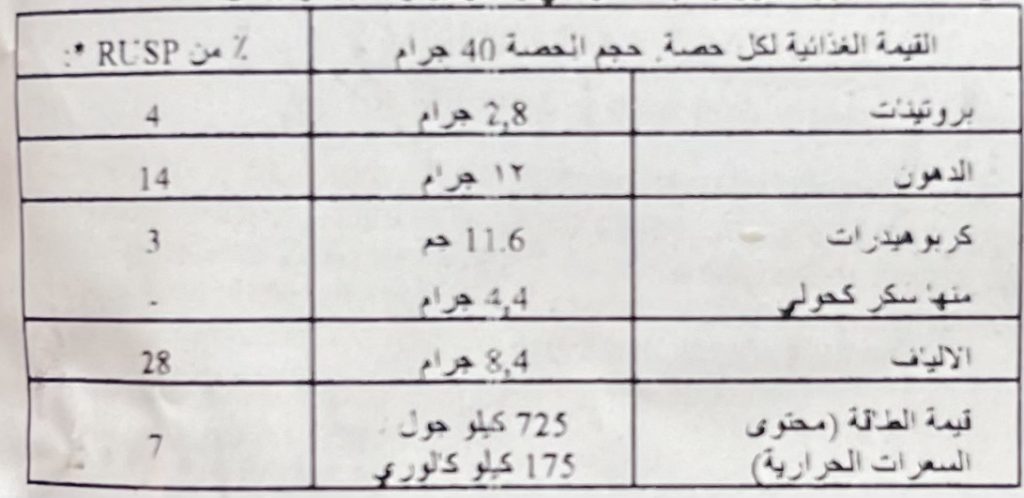 القيمة الغذائية لكل حصة. حجم الحصة 40 جرام	٪ من RUSP *:
بروتينات	2,8 جرام	4
الدهون	١٢ جرام	14
كربوهيدرات	11.6 جم	3
منها سكر كحولي	4,4 جرام	-
الالياف	8,4 جرام	28
قيمة الطاقة (محتوى	725 كيلو جول	7
السعرات الحرارية)	175 كيلو كالوري